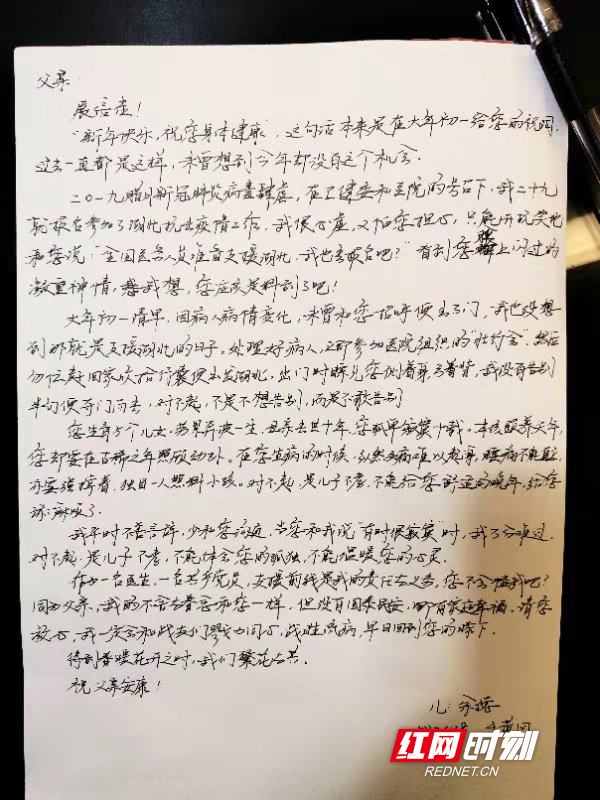 父亲：
展信佳！
“新年快乐，祝您身体健康”，这句话本来是在大年初一给您的祝词，
过去一直都是这样，未曾想到今年却没有这个机会。
二〇一九腊月新冠肺炎病毒肆虐，在卫健委和医院的号召下，我二十九
就报名参加了湖北抗击疫情工作，我很心虚，又怕您担心，只能开玩笑地
和您说：“全国医务人员准备支援湖北，我也去报名吧？”看到您脸上闪过的
凝重神情，我想，您应该是料到了吧！
大年初一清早，因病人病情变化，未曾和您招呼便出了门，我也没想
到那就是支援湖北的日子。处理好病人，立即参加医院组织的“壮行会”，然后
匆忙赶回家收拾行囊便出发湖北，出门时瞥见您侧着身弓着背，我没有告别
半句便夺门而去，对不起，不是不想告别，而是不敢告别
您生育5个儿女，劳累奔波一生，
本该颐养天年，
您却要在古稀之年照顾幼孙。在您生病的时候，
亦要强撑着，独自一人照料小孩。对不起，是儿子不孝，不能给您舒适的晚年，给您
添麻烦了。
我平时不善言辞，少和您沟通，当您和我说“有时很寂寞”时，我十分难过，
对不起，是儿子不孝，不能体会您的孤独，不能温暖您的心灵。
作为一名医生，一名共产党员，支援前线是我的责任与义务，您不会怪我吧？
同为父亲，我的不舍与眷恋和您一样，但没有国泰民安，哪有家庭幸福。请您
放心，我一定会和战友们勠力同心，战胜流病，早日回到您的膝下。
待到春暖花开之时，我们繁花与共。
祝父亲安康！
儿：
红网时刻
REDNET.CN